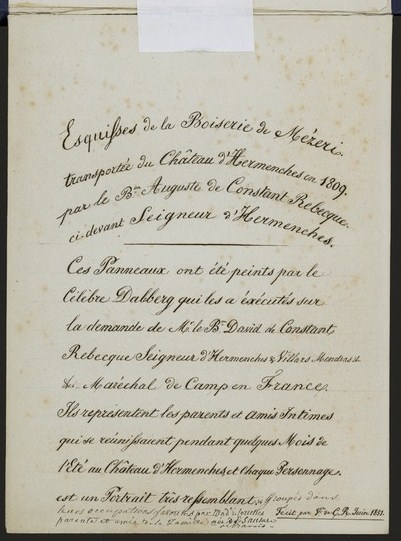 Esquisses de la Boiserie de Mézeri.
transportée du Château d'Hermenches en 1809.
par le Bon Auguste de Constant Rebecque.
ci devant Seigneur d'Hermenches.
Ces Panneaux ont été peints par le
Célèbre Dalberg qui les a éxécutés sur
la demande de Mr. le Bn. David de Constant
Rebecque Seigneur d'Hermenches & Villars Mendras &
Maréchal de Camp en France.
Ils représentent les parents et amis Intimes
qui se réunissaient pendant quelques Mois de
l'Eté au Château d'Hermenches et chaque Personnage
est un Portrait très ressemblant, & groupés dans
leurs occupations favorites par
Fecit par de C. R. Juin 1851.
parents et amis de la famille